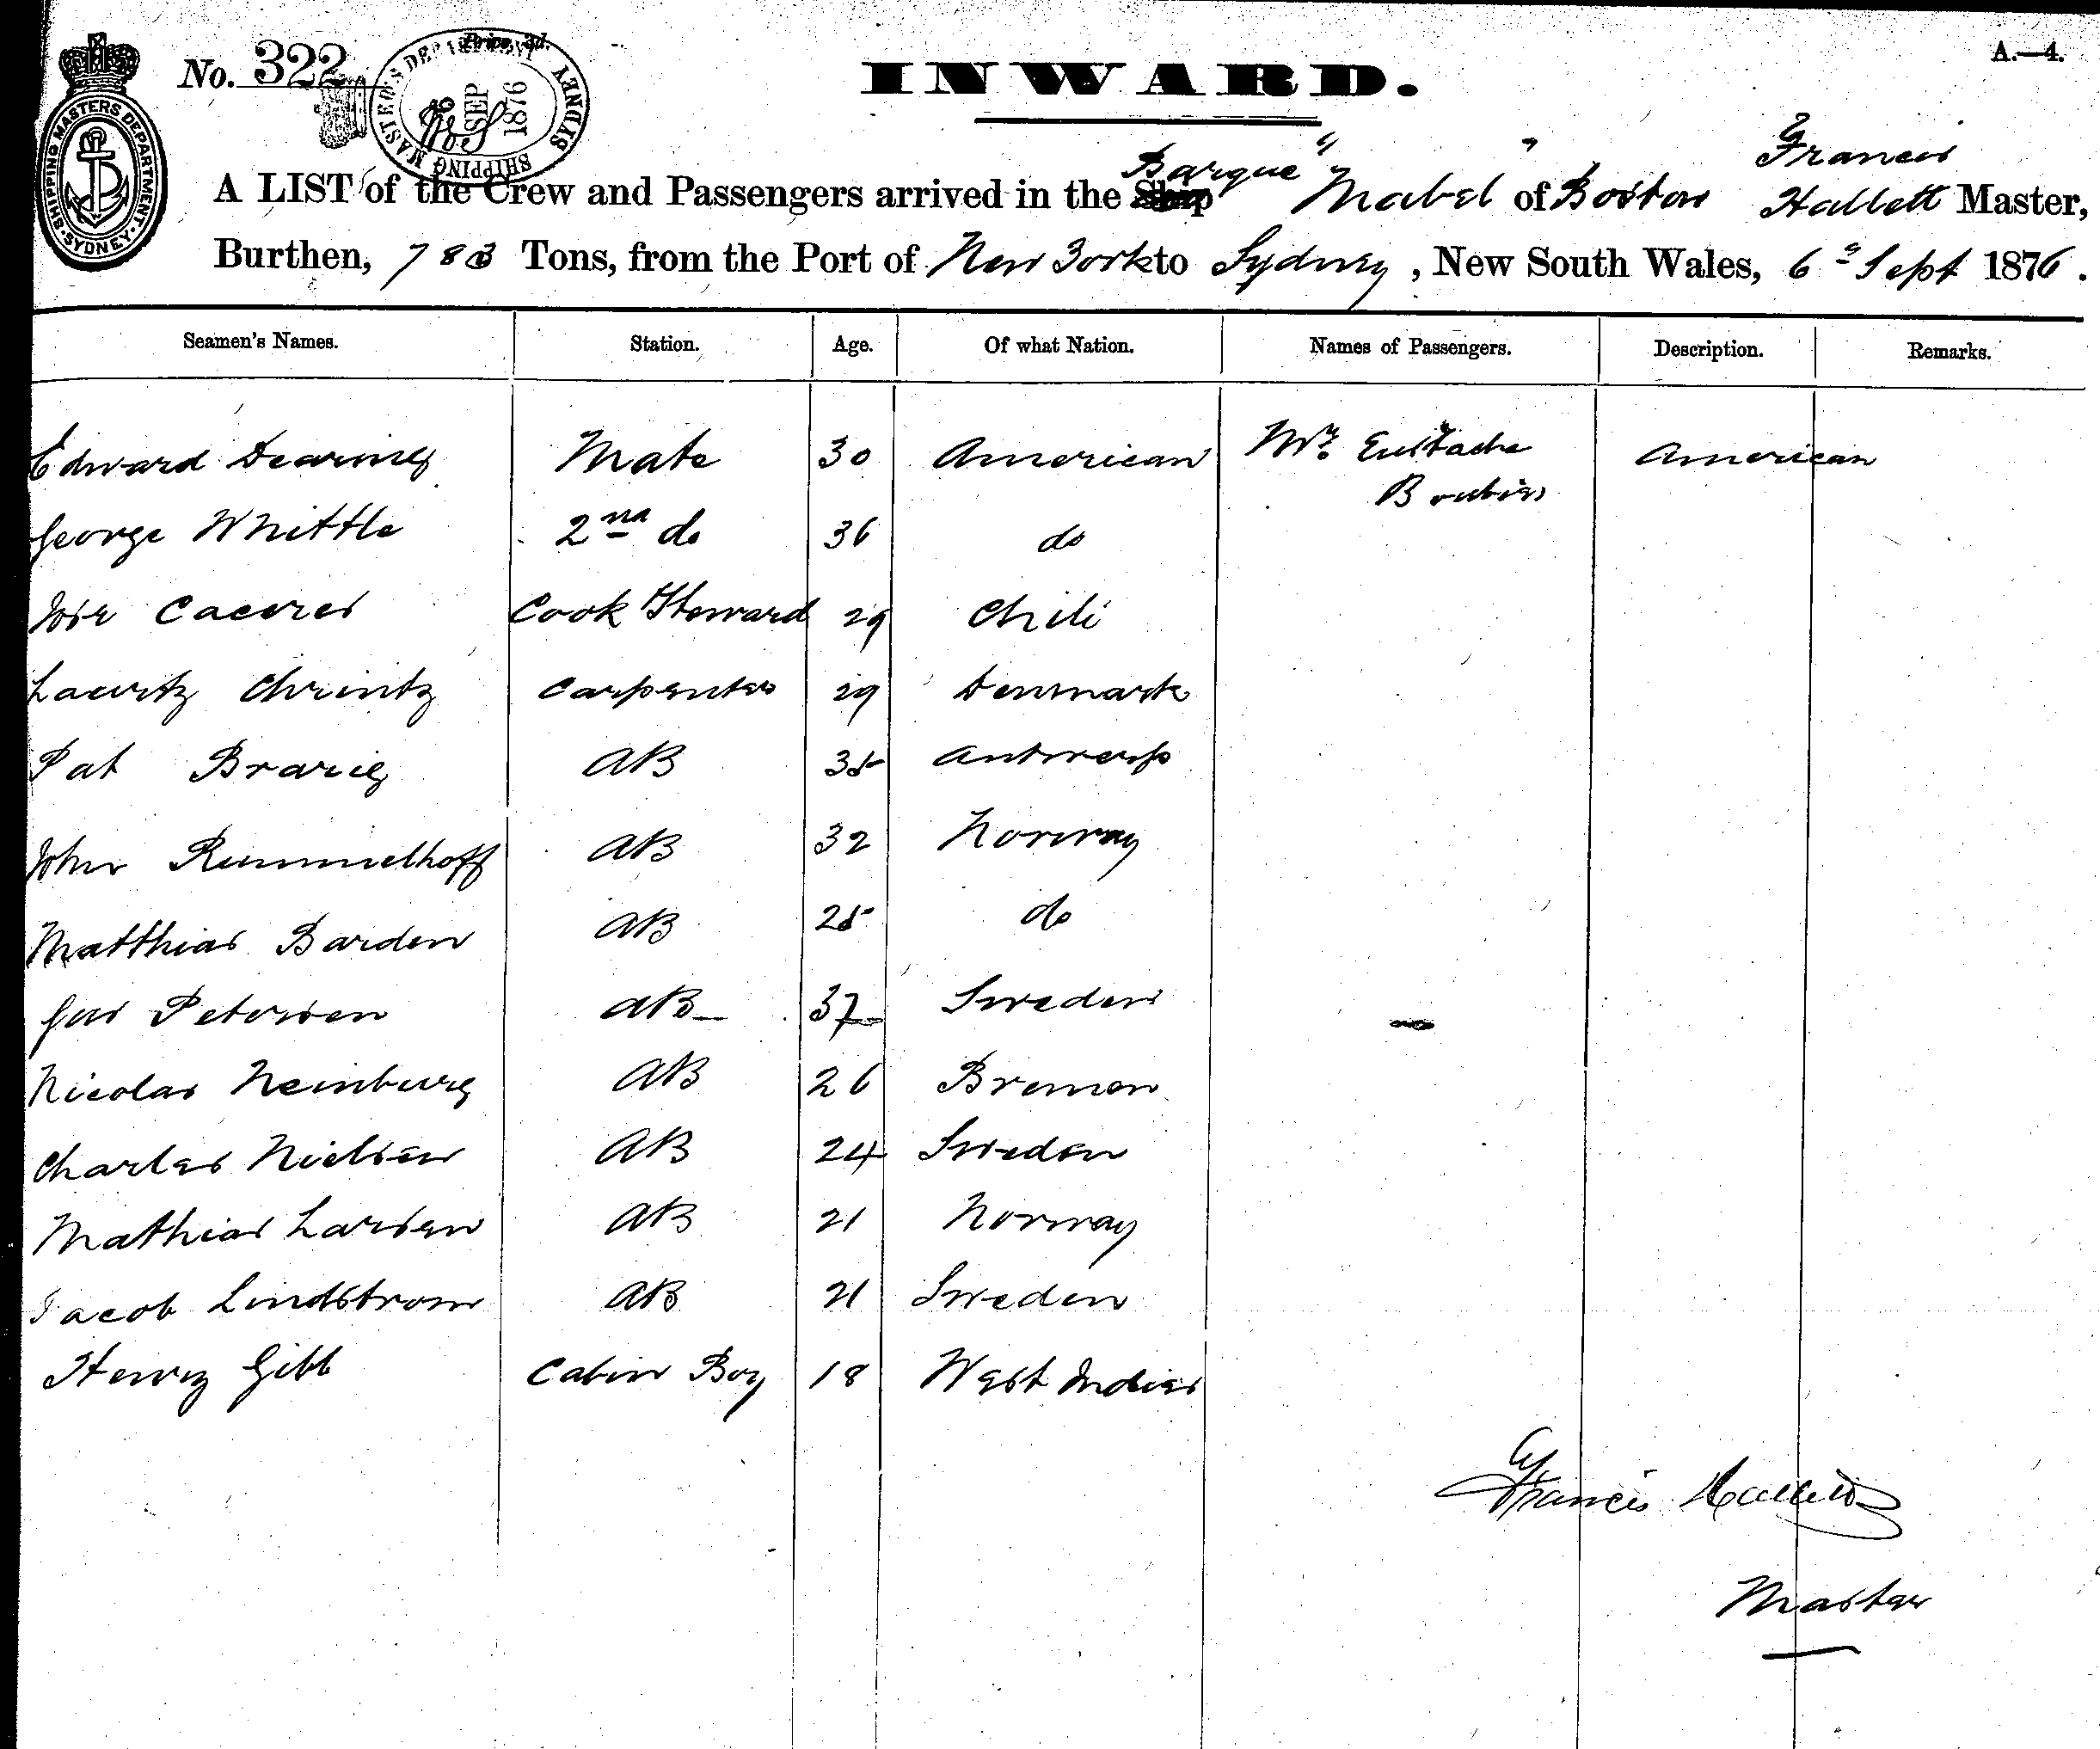 No. 322
Price, 3d.
SHIPPING MASTER'S DEPARTMENT SYDNEY
SEP
1876
SHIPPING MASTERS DEPARTMENT
SYDNEY
A.—4.
INWARD.
Barque Francis
A LIST of the Crew and Passengers arrived in the Ship "Mabel" of Boston Hallett Master,
Burthen, 783 Tons, from the Port of New York to Sydney, New South Wales, 6 Sept 1876.
Seamen's Names. Station. Age. Of what Nation. Names of Passengers. Description. Remarks.
Edward Dearing Mate 30 American Mr. Eustache American
George Whittle 2nd do 36 do
Jose Caceres Cook Steward 29 Chili
Lauritz Christz Carpenter 29 Denmark
Pat AB 35 Antwerp
John Rummelhoff AB 32 Norway
Matthias Barden AB 25 do
Gus Petersen AB 37 Sweden
Nicolas Neinburg AB 26 Bremen
Charles Nielsen AB 24 Sweden
Mathias Larsen AB 21 Norway
Jacob Lindstrom AB 21 Sweden
Henry Gibb Cabin Boy 18 West Indies
Francis Hallett
Master